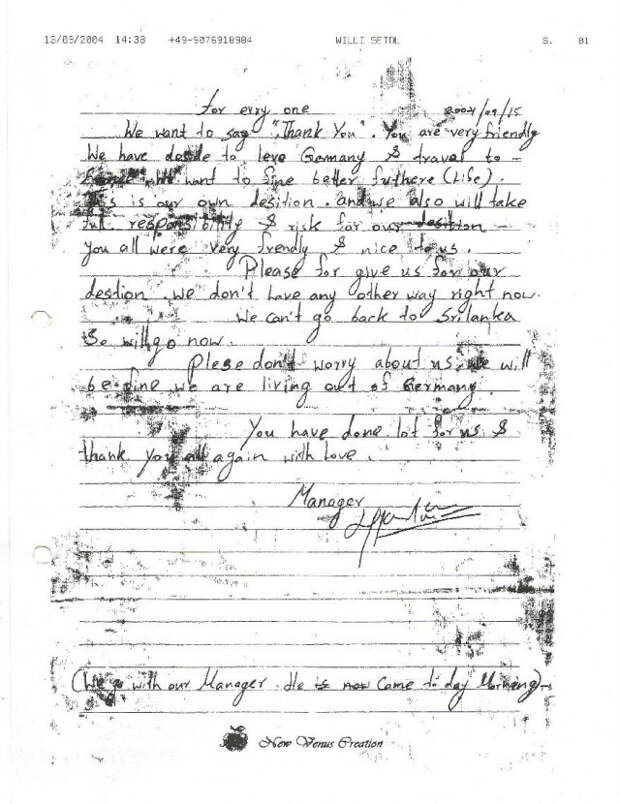 13/09/2004 14:38 +49-9076918984 WILLI SEIDL S. 01
for evry one 2004/09/15
We want to say "Thank You". You are very friendly
We have deside to leve Germany & travel to -
We want to fine better futhere (Life).
This is our own desition. and we also will take
full responsibility & risk for our desition -
you all were very frendly & nice to us.
Please for give us for our
destion. we don't have any other way right now.
We can't go back to Srilanka
So will go now.
Please don't worry about us, we will
be fine we are living out of Germany.
You have done lot for us &
thank you all again with Love.
Manager
(We go with our Manager. He is now Came to day Morning)
New Venus Creation